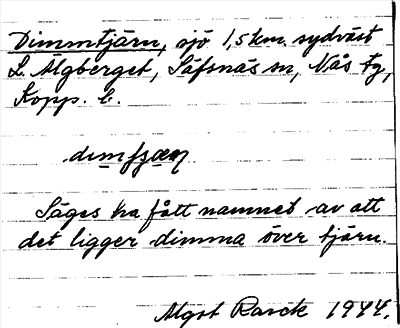 Dimmtjärn, sjö 1,5 km. sydväst
L. Älgberget, Säfsnäs sn, Nås tg,
Kopp. l.
Säges ha fått namnet av att
det ligger dimma över tjärn.
Mgst Rarck 1944.